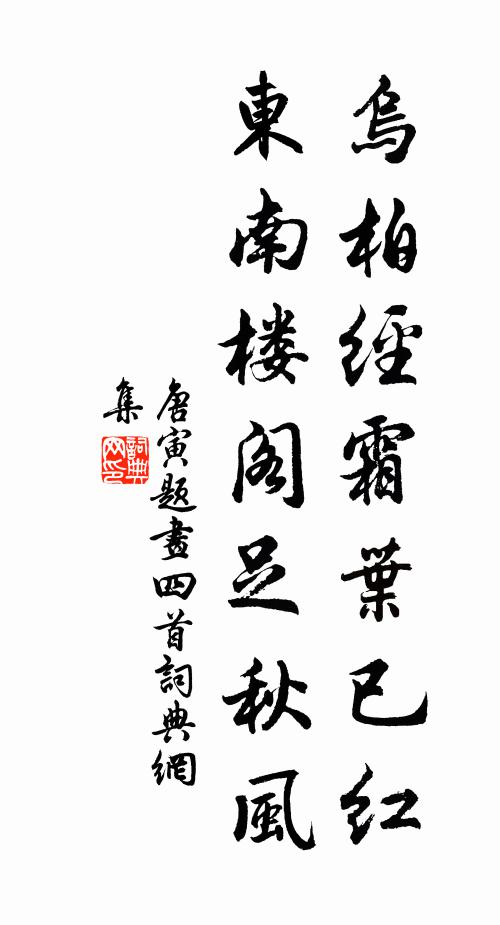 烏柏經霜葉已紅
東南楼阁足秋風
唐寅題畫四首詞典網
集
詞典
网印